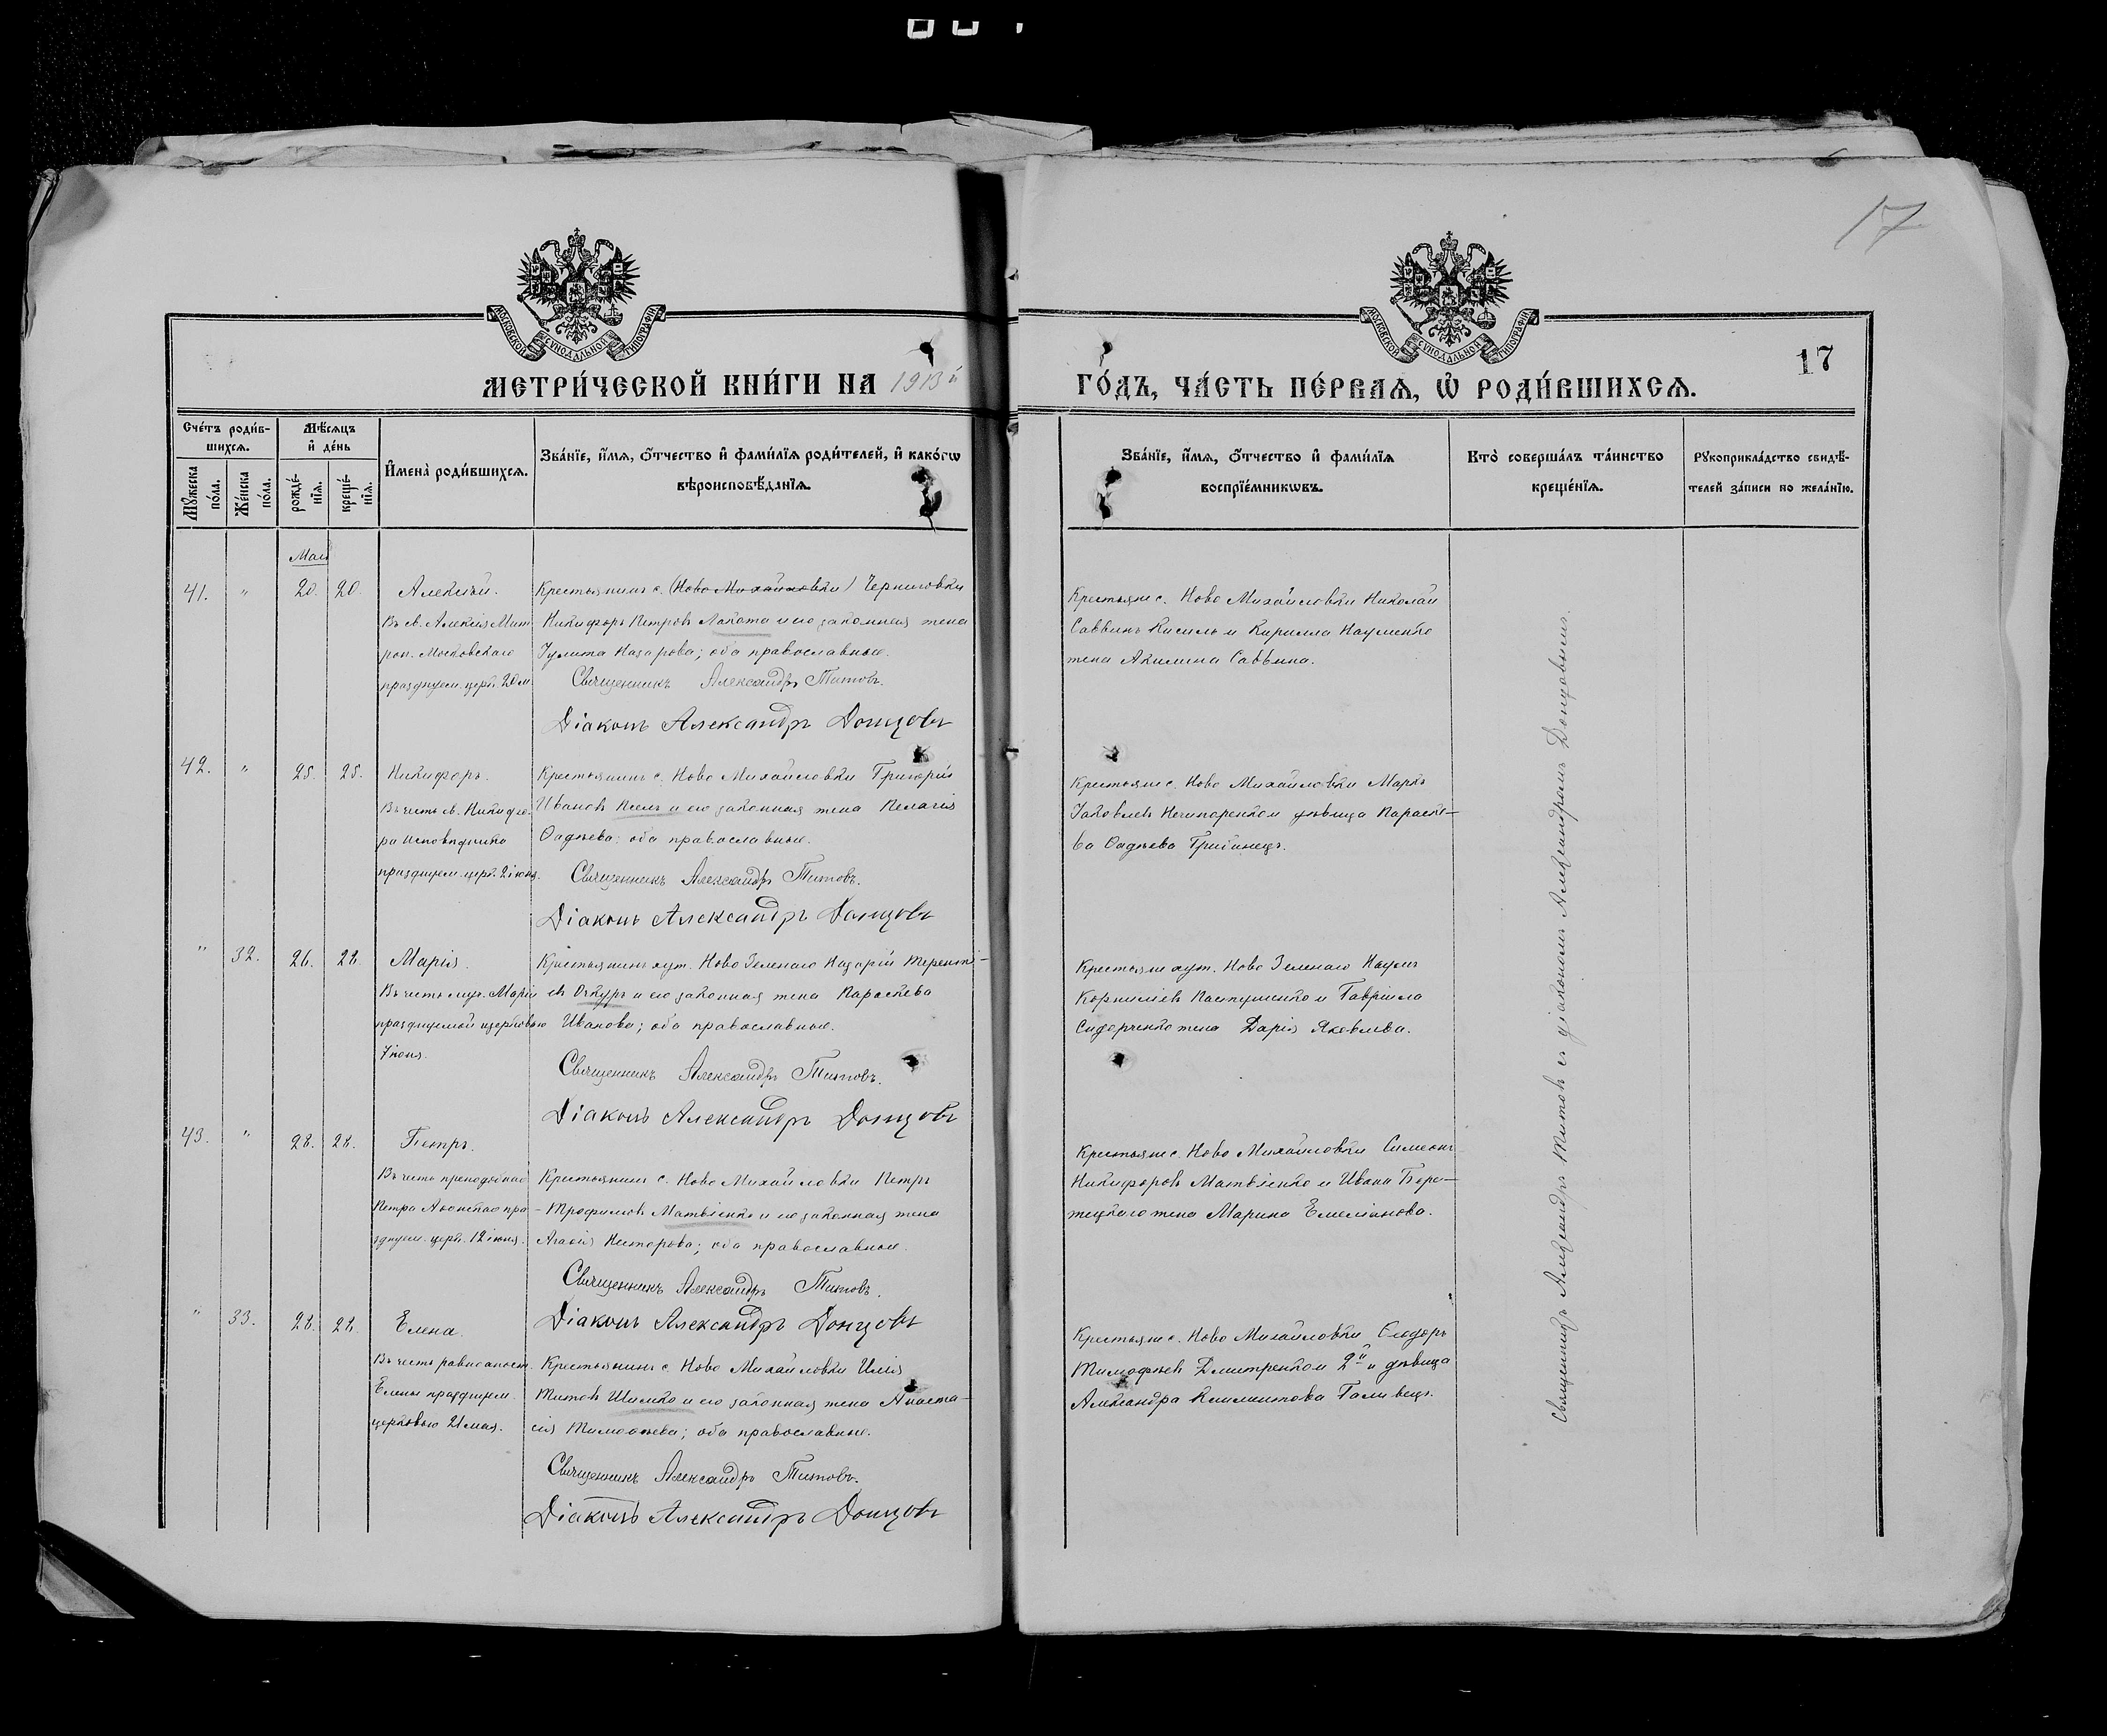 17
МОСКОВСКОЙ СУНОДАЛЬНОЙ ТИПОГРАФІИ
МОСКОВСКОЙ СУНОДАЛЬНОЙ ТИПОГРАФІИ
17
МЕТРИ́ЧЕСКОЙ КНИ́ГИ НА 1913й
ГО́ДЪ, ЧА́СТЬ ПЕ́РВАѦ, Ѡ҆ РОДИ́ВШИХСѦ.
Сче́тъ роди́в-
шихсѧ.
Мѣ́сѧцъ
и҆ де́нь
Мꙋ́жеска
по́ла.
Же́нска
по́ла.
рожде́-
нїѧ.
креще́-
нїѧ.
И҆мена̀ роди́вшихсѧ.
Зва́нїе, и҆́мѧ, ѻ҆́тчество и҆ фами́лїѧ роди́телей, и҆ како́гѡ
вѣроисповѣ́данїѧ.
Зва́нїе, и҆́мѧ, ѻ҆́тчество и҆ фами́лїѧ
воспрїе́мникѡвъ.
Кто̀ соверша́лъ та́инство
креще́нїѧ.
Рꙋкоприкла́дство свидѣ́-
телей за́писи по жела́нїю.
Май
41. " 20. 20. Алексѣй.
Въ св. Алексія Мит
роп. Московскаго
празднуем. церк. 20 м
Крестьянинъ с. (Ново Михайловки) Черниговки
Никифоръ Петровъ Лакота и его законная жена
Іулита Назарова; оба православные.
Священникъ Александръ Титовъ.
Діаконъ Александръ Донцовъ
Крестьяне с. Ново Михайловки Николай
Саввинъ Кисиль и Кирилла Науменко
жена Акилина Саввина.
42. " 25. 25. Никифоръ.
Въ честь св. Никифо-
ра Исповѣдника
празднуем. церк. 2 іюня.
Крестьянинъ с. Ново Михайловки Григорій
Ивановъ и его законная жена Пелагія
Ѳадѣева: оба православные.
Священникъ Александръ Титовъ.
Діаконъ Александръ Донцовъ
Крестьяне с. Ново Михайловки Маркъ
Іаковлевъ Нечипоренко и дѣвица Параске-
ва Ѳадѣева
" 32. 26. 28. Марія.
Въ честь муч. Маріи
празднуемой церковью
7 іюня.
Крестьянинъ хут. Ново Зеленаго Назарій Теренті-
евъ Очкуръ и его законная жена Параскева
Иванова; оба православные.
Священникъ Александръ Титовъ.
Діаконъ Александръ Донцовъ
Крестьяне хут. Ново Зеленаго Наумъ
Корниліевъ Пастушенко и Гавріила
Сидорченко жена Дарія Яковлева.
43. " 28. 28. Петръ.
Въ честь преподобнаго
Петра Аѳонскаго пра
зднуем. церк. 12 іюня.
Крестьянинъ с. Ново Михайловки Петръ
Трофимовъ Матвіенко и его законная жена
Агаѳія Несторова; оба православные.
Священникъ Александръ Титовъ.
Діаконъ Александръ Донцовъ
Крестьяне с. Ново Михайловки Симеонъ
Никифоровъ Матвіенко и Ивана
жена Марина Емеліанова.
" 33. 28. 28. Елена.
Въ честь равноапост.
Елены празднуем.
церковью 21 мая.
Крестьянинъ с. Ново Михайловки Илія
Титовъ Шилко и его законная жена Анаста-
сія Тимоѳеева; оба православные.
Священникъ Александръ Титовъ.
Діаконъ Александръ Донцовъ
Крестьяне с. Ново Михайловки Ѳеодоръ
Тимофѣевъ Дмитренко 2й и дѣвица
Александра Климентова
Священникъ Александръ Титовъ съ діакономъ Александромъ Донцовымъ.